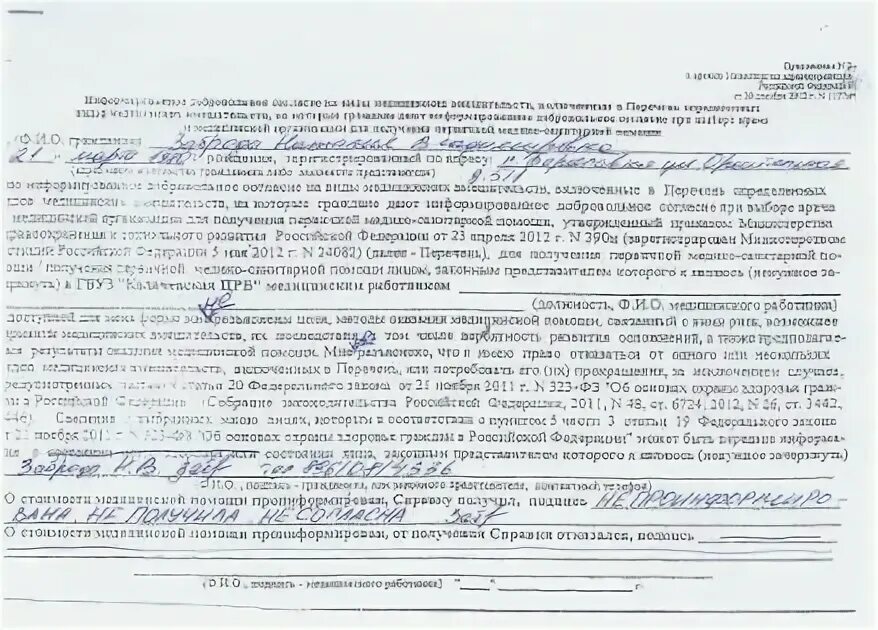 Приложение N 2
к приказу Министерства здравоохранения
Российской Федерации
от 20 декабря 2012 г. N 1177н
Информированное добровольное согласие на виды медицинских вмешательств, включенные в Перечень определенных
видов медицинских вмешательств, на которые граждане дают информированное добровольное согласие при выборе врача
и медицинской организации для получения первичной медико-санитарной помощи
(Ф.И.О. гражданина)
21 марта рождения, зарегистрированный по адресу
(гражданина либо законного представителя)
информированное добровольное согласие на виды медицинских вмешательств, включенные в Перечень определенных
медицинских вмешательств, на которые граждане дают информированное добровольное согласие при выборе врача
медицинской организации для получения первичной медико-санитарной помощи, утвержденный приказом Министерства
здравоохранения и социального развития Российской Федерации от 23 апреля 2012 г. N 390н (зарегистрирован Министерством
юстиции Российской Федерации 5 мая 2012 г. N 24082) (далее - Перечень), для получения первичной медико-санитарной по-
мощи / получения первичной медико-санитарной помощи лицом, законным представителем которого я являюсь (ненужное за-
черкнуть) в ГБУЗ "Калачевская ЦРБ" медицинским работником
не (должность, Ф.И.О. медицинского работника)
доступной для меня форме разъяснены цели, методы оказания медицинской помощи, связанный с ними риск, возможные
варианты медицинских вмешательств, их последствия, в том числе вероятность развития осложнений, а также предполагае-
мые результаты оказания медицинской помощи. Мне разъяснено, что я имею право отказаться от одного или нескольких
видов медицинских вмешательств, включенных в Перечень, или потребовать его (их) прекращения, за исключением случаев,
предусмотренных частью 9 статьи 20 Федерального закона от 21 ноября 2011 г. N 323-ФЗ "Об основах охраны здоровья граж-
дан в Российской Федерации" (Собрание законодательства Российской Федерации, 2011, N 48, ст. 6724; 2012, N 26, ст. 3442,
3446). Сведения о выбранных мною лицах, которым в соответствии с пунктом 5 части 3 статьи 19 Федерального закона
от 21 ноября 2011 г. N 323-ФЗ "Об основах охраны здоровья граждан в Российской Федерации" может быть передана информа-
ция о состоянии лица, законным представителем которого я являюсь (ненужное зачеркнуть)
Заброда Н.В.
(Ф.И.О., подпись гражданина, законного представителя, контактный телефон)
О стоимости медицинской помощи проинформирован, Справку получил, подпись НЕ ПРОИНФОРМИРО-
ВАНА, НЕ ПОЛУЧИЛА НЕ СОГЛАСНА
О стоимости медицинской помощи проинформирован, от получения Справки отказался, подпись
(Ф.И.О., подпись - медицинского работника) " " г.